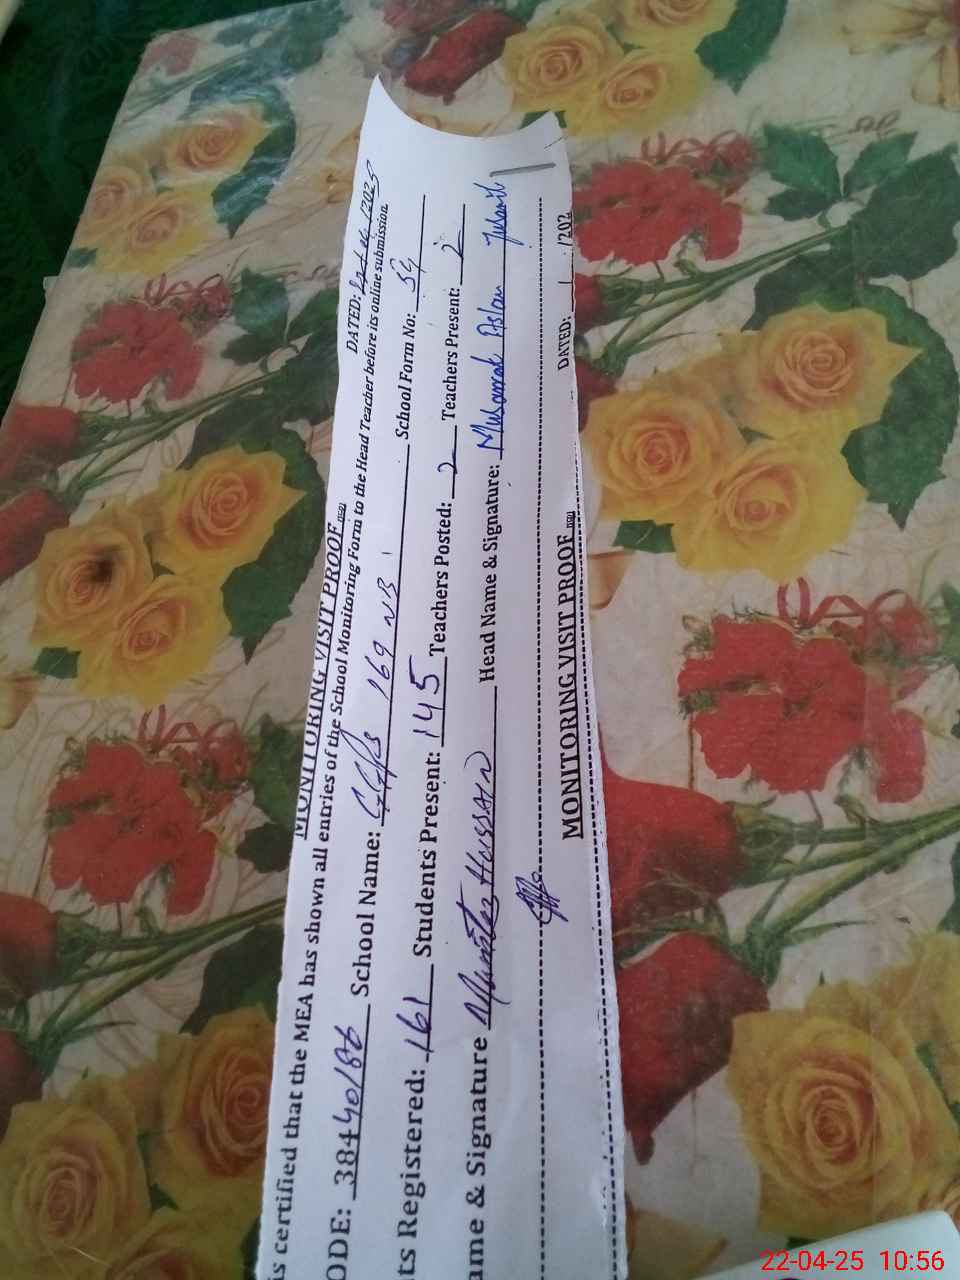 MONITORING VISIT PROOF DATED: /2025
is certified that the MEA has shown all entries of the School Monitoring Form to the Head Teacher before its online submission.
ODE: 38440186 School Name: GGPS 169 NB School Form No: 59
ts Registered: 161 Students Present: 145 Teachers Posted: 2 Teachers Present: 2
ame & Signature Hussain Head Name & Signature: Musarrat Aslam
MONITORING VISIT PROOF DATED: / /202
22-04-25 10:56